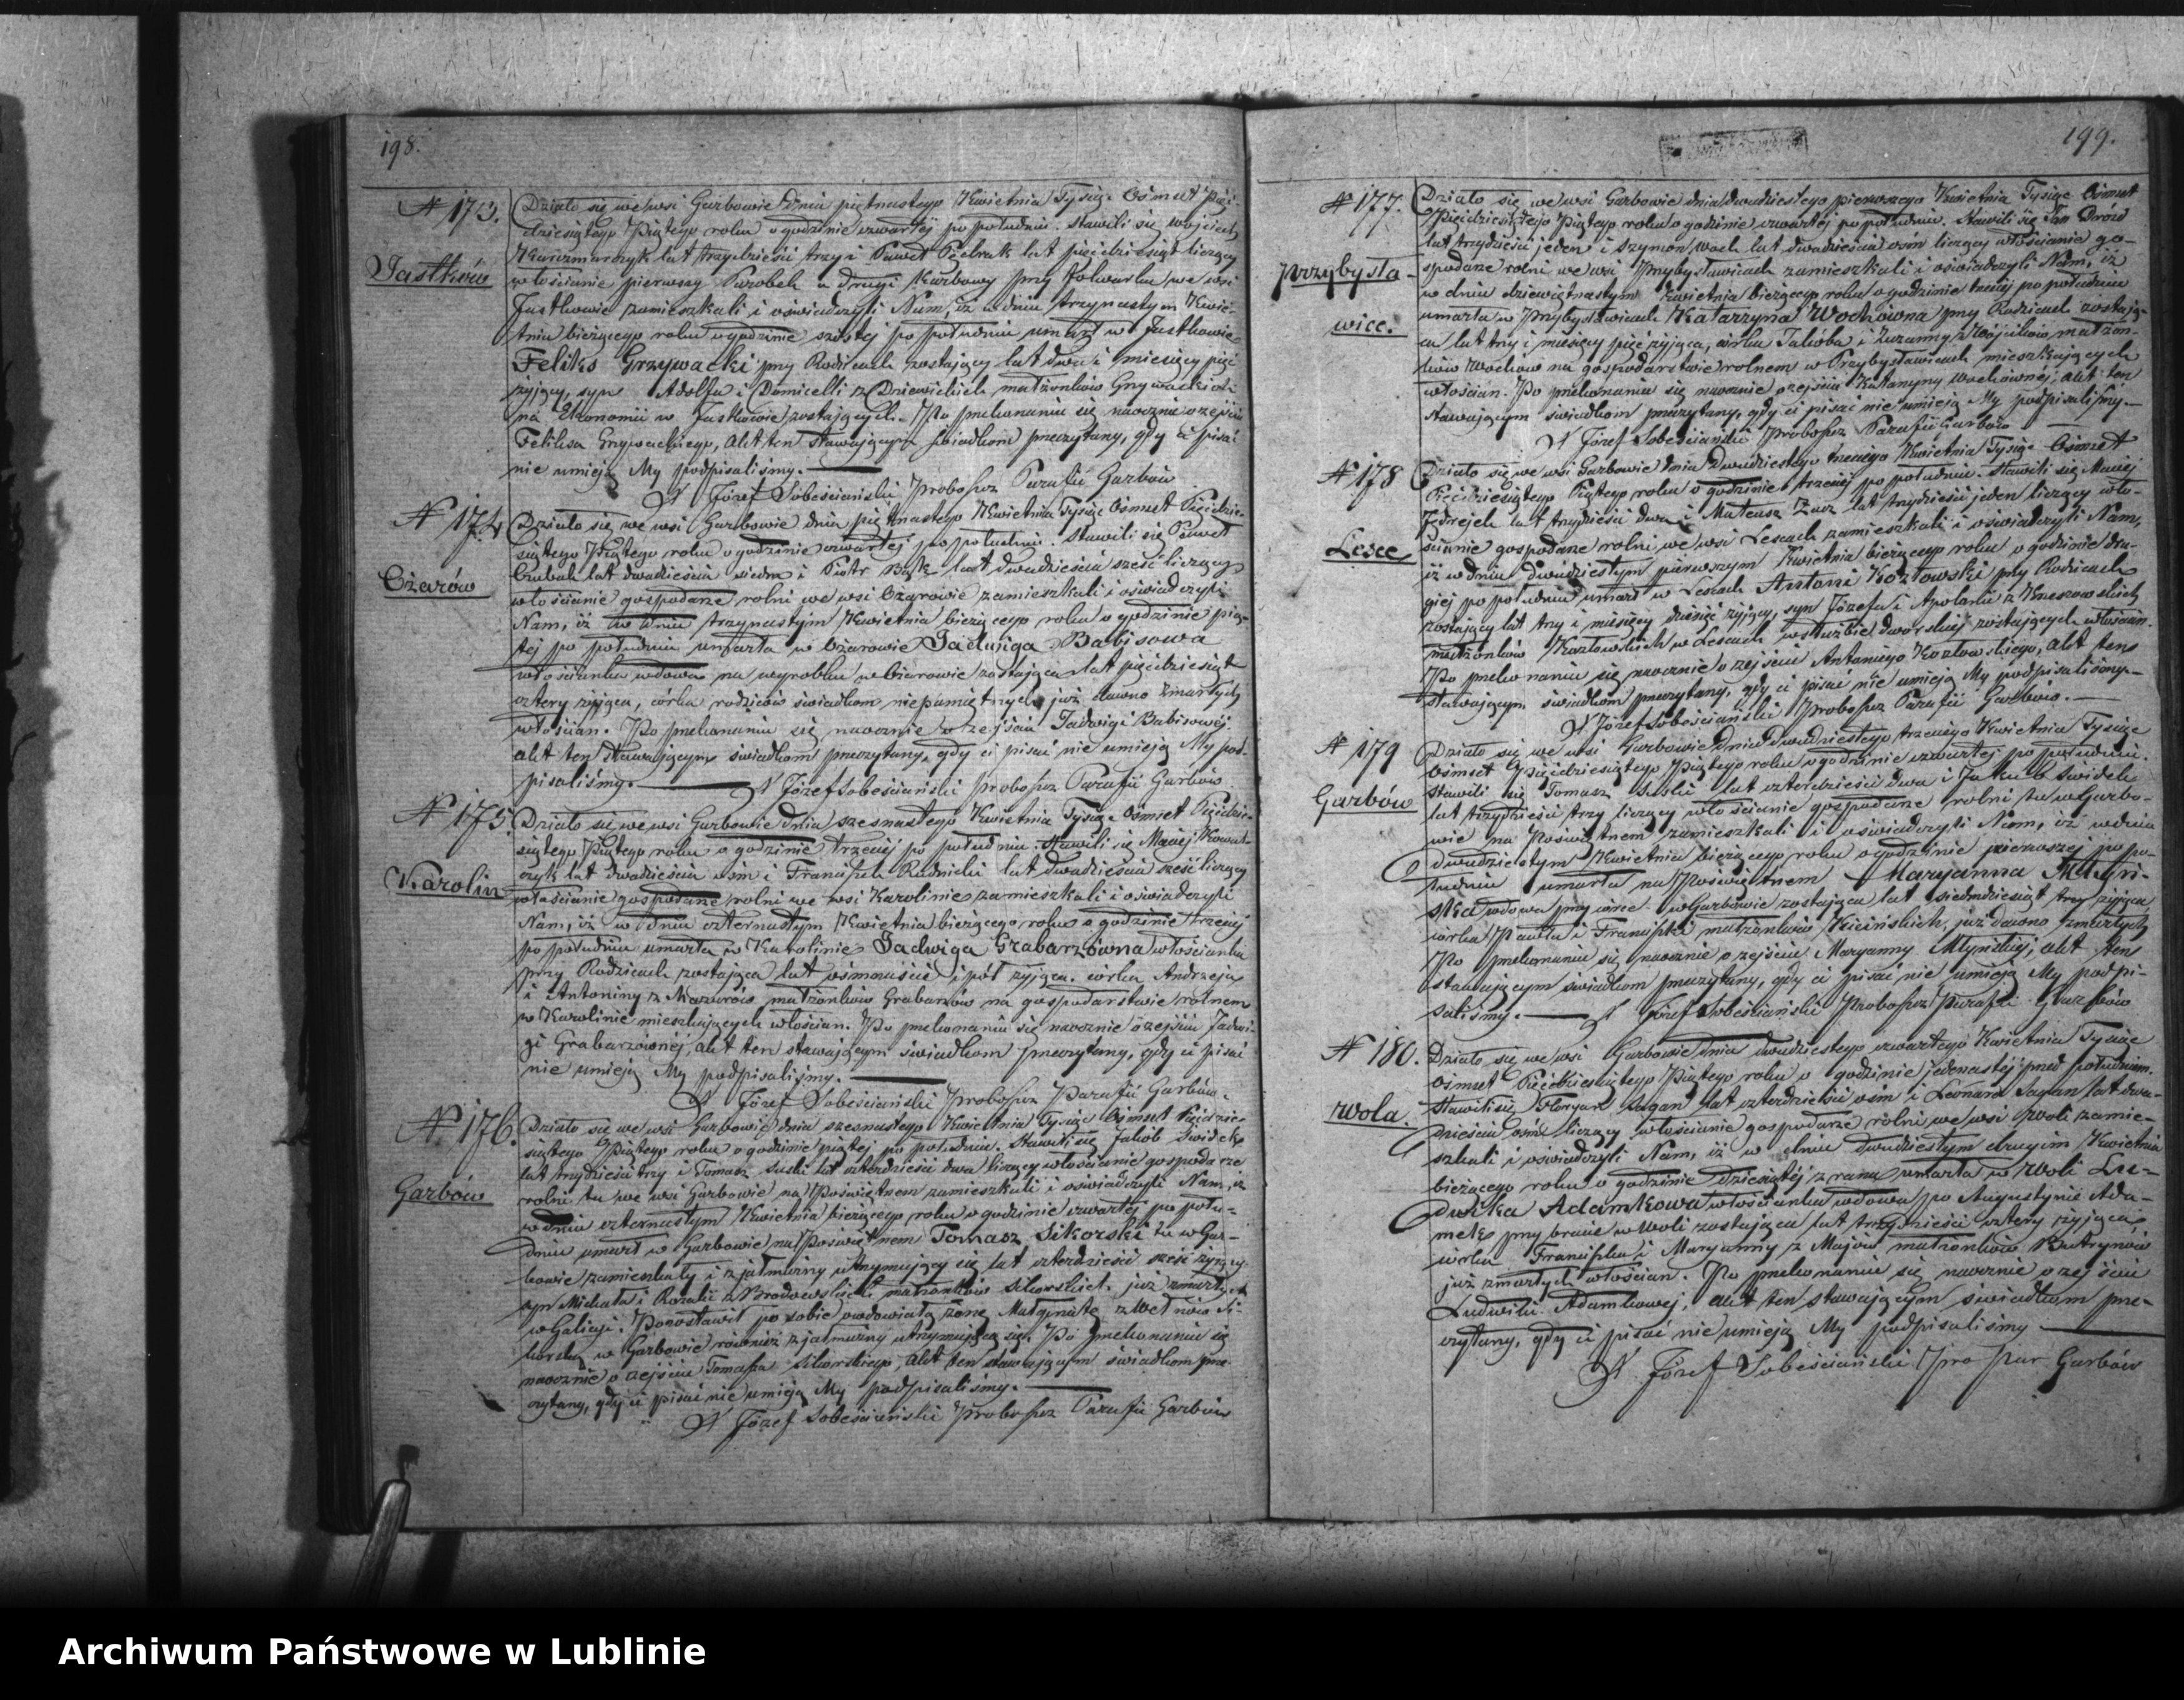 198.
N 173.
Jastków
Działo się we wsi Garbowie dnia piętnastego Kwietnia Tysiąc Ośmset Pięć-
dziesiątego Piątego roku o godzinie czwartej po południu. Stawili się Wojciech
Karczmarczyk lat trzydzieści trzy i Paweł lat pięćdziesiąt liczący
włościanie pierwszy Parobek a drugi Karbowy przy folwarku we wsi
Jastkowie zamieszkali i oświadczyli Nam, iż w dniu trzynastym Kwie-
tnia bieżącego roku o godzinie szóstej po południu umarł w Jastkowie
Feliks Grzywacki przy Rodzicach zostający lat dwa i miesięcy pięć
żyjący, syn Adolfa i Domicelli z małżonków Grzywackich
na Ekonomii w Jastkowie zostających. Po przekonaniu się naocznie o zejściu
Feliksa Grzywackiego, Akt ten stawającym świadkom przeczytany, gdy ci pisać
nie umieją My podpisaliśmy.
X Józef Sobeściański Proboszcz Parafii Garbów
N 174
Ożarów
Działo się we wsi Garbowie dnia piętnastego Kwietnia Tysiąc Ośmset Pięćdzie-
siątego Piątego roku o godzinie czwartej po południu. Stawili się Paweł
Czubak lat dwadzieścia siedm i Piotr Bąk lat dwadzieścia sześć liczący
włościanie gospodarze rolni we wsi Ożarowie zamieszkali i oświadczyli
Nam, iż w dniu trzynastym Kwietnia bieżącego roku o godzinie pią-
tej po południu umarła w Ożarowie Jadwiga Babisowa
włościanka wdowa na wyrobku w Ożarowie zostająca lat pięćdziesiąt
cztery żyjąca, córka rodziców świadkom niepamiętnych już dawno zmarłych
włościan. Po przekonaniu się naocznie o zejściu Jadwigi Babisowej.
akt ten stawającym świadkom przeczytany, gdy ci pisać nie umieją My pod-
pisaliśmy. X Józef Sobeściański Proboszcz Parafii Garbów
N 175.
Karolin
Działo się we wsi Garbowie dnia szesnastego Kwietnia Tysiąc Ośmset Pięćdzie-
siątego Piątego roku o godzinie trzeciej po południu. Stawili się Maciej Kowal-
czyk lat dwadzieścia ośm i Franciszek Rudnicki lat dwadzieścia sześć liczący
włościanie gospodarze rolni we wsi Karolinie zamieszkali i oświadczyli
Nam, iż w dniu czternastym Kwietnia bieżącego roku o godzinie trzeciej
po południu umarła w Karolinie Jadwiga Grabarzówna włościanka
przy Rodzicach zostająca lat ośmnaście i pół żyjąca. córka Andrzeja
i Antoniny z Mazurów małżonków Grabarzów na gospodarstwie rolnem
w Karolinie mieszkających włościan. Po przekonaniu się naocznie o zejściu Jadwi-
gi Grabarzównej, akt ten stawającym świadkom przeczytany, gdy ci pisać
nie umieją My podpisaliśmy.
X Józef Sobeściański Proboszcz Parafii Garbów.
N. 176.
Garbów
Działo się we wsi Garbowie dnia szesnastego Kwietnia Tysiąc Ośmset Pięćdzie-
siątego Piątego roku o godzinie piątej po południu. Stawili się Jakób Świdek
lat trzydzieści trzy i Tomasz Suski lat czterdzieści dwa liczący włościanie gospodarze
rolni tu we wsi Garbowie na Poświętnem zamieszkali i oświadczyli Nam, iż
w dniu czternastym Kwietnia bieżącego roku o godzinie czwartej po połu-
dniu umarł w Garbowie na Poświętnem Tomasz Sikorski tu w Gar-
bowie zamieszkały i z jałmużny utrzymujący się lat czterdzieści sześć żyjący
syn Michała i Rozalii z Brodowskich małżonków Sikorskich. już zmarłych
w Galicyi. Pozostawił po sobie owdowiałą żonę Małgorzatę z Si-
korską w Garbowie również z jałmużny utrzymującą się. Po przekonaniu się
naocznie o zejściu Tomasza Sikorskiego, akt ten stawającym świadkom prze-
czytany, gdy ci pisać nie umieją My podpisaliśmy.
X Józef Sobeściański Proboszcz Parafii Garbów
199.
N 177.
Przybysła-
wice.
Działo się we wsi Garbowie dnia dwudziestego pierwszego Kwietnia Tysiąc Ośmset
Pięćdziesiątego Piątego roku o godzinie czwartej po południu. Stawili się Jan Drózd
lat trzydzieści jeden i Szymon Woch lat dwadzieścia ośm liczący włościanie go-
spodarze rolni we wsi Przybysławicach zamieszkali i oświadczyli Nam, iż
w dniu dziewiętnastym Kwietnia bieżącego roku o godzinie trzeciej po południu
umarła w Przybysławicach Katarzyna Wochówna przy Rodzicach zostają-
ca lat trzy i miesięcy pięć żyjąca, córka Jakóba i Zuzanny z Wójcików małżon-
ków Wochów na gospodarstwie rolnem w Przybysławicach mieszkających
włościan. Po przekonaniu się naocznie o zejściu Katarzyny Wochównej, akt ten
stawającym świadkom przeczytany, gdy ci pisać nie umieją My podpisaliśmy.
X Józef Sobeściański Proboszcz Parafii Garbów
N 178
Lesce
Działo się we wsi Garbowie dnia Dwudziestego trzeciego Kwietnia Tysiąc Ośmset
Pięćdziesiątego Piątego roku o godzinie trzeciej po południu. Stawili się Maciej
Jędrejek lat trzydzieści dwa i Mateusz Zając lat trzydzieści jeden liczący wło-
ścianie gospodarze rolni we wsi Lescach zamieszkali i oświadczyli Nam,
iż w dniu dwudziestym pierwszym Kwietnia bieżącego roku o godzinie dru-
giej po południu umarł w Lescach Antoni Kozłowski przy Rodzicach
zostający lat trzy i miesięcy dziesięć żyjący, syn Józefa i Apolonii z
małżonków Kozłowskich w Lescach w służbie dworskiej zostających włościan.
Po przekonaniu się naocznie o zejściu Antoniego Kozłowskiego, akt ten
stawającym świadkom przeczytany, gdy ci pisać nie umieją My podpisaliśmy.
X Józef Sobeściański Proboszcz Parafii Garbów.
N 179
Garbów
Działo się we wsi Garbowie dnia dwudziestego trzeciego Kwietnia Tysiąc
Ośmset Pięćdziesiątego Piątego roku o godzinie czwartej po południu.
Stawili się Tomasz Suski lat czterdzieści dwa i Jakub Świdek
lat trzydzieści trzy liczący włościanie gospodarze rolni tu w Garbo-
wie na Poświętnem zamieszkali i oświadczyli Nam, iż w dniu
dwudziestym Kwietnia bieżącego roku o godzinie pierwszej po po-
łudniu umarła na Poświętnem Maryanna Młyń-
ska wdowa przy córce w Garbowie zostająca lat siedmdziesiąt trzy żyjąca
córka Pawła i Franciszki małżonków Kicińskich, już dawno zmarłych
Po przekonaniu się naocznie o zejściu Maryanny Młyńskiej, akt ten
stawającym świadkom przeczytany, gdy ci pisać nie umieją My podpi-
saliśmy. X Józef Sobeściański Proboszcz Parafii Garbów
N 180.
Wola.
Działo się we wsi Garbowie dnia dwudziestego czwartego Kwietnia Tysiąc
Ośmset Pięćdziesiątego Piątego roku o godzinie jedenastej przed południem.
Stawili się Floryan Sagan lat czterdzieści ośm i Leonard Sagan lat dwa-
dzieścia ośm liczący włościanie gospodarze rolni we wsi Woli zamie-
szkali i oświadczyli Nam, iż w dniu dwudziestym drugim Kwietnia
bieżącego roku o godzinie dziesiątej z rana umarła w Woli Lu-
dwika Adamkowa włościanka wdowa po Augustynie Ada-
mek przy bracie w Woli zostająca lat trzydzieści cztery żyjąca
córka Franciszka i Maryanny z Majów małżonków Butrynów
już zmarłych włościan. Po przekonaniu się naocznie o zejściu
Ludwiki Adamkowej, akt ten stawającym świadkom prze-
czytany, gdy ci pisać nie umieją My podpisaliśmy
X Józef Sobeściański Pro Par Garbów
Archiwum Państwowe w Lublinie